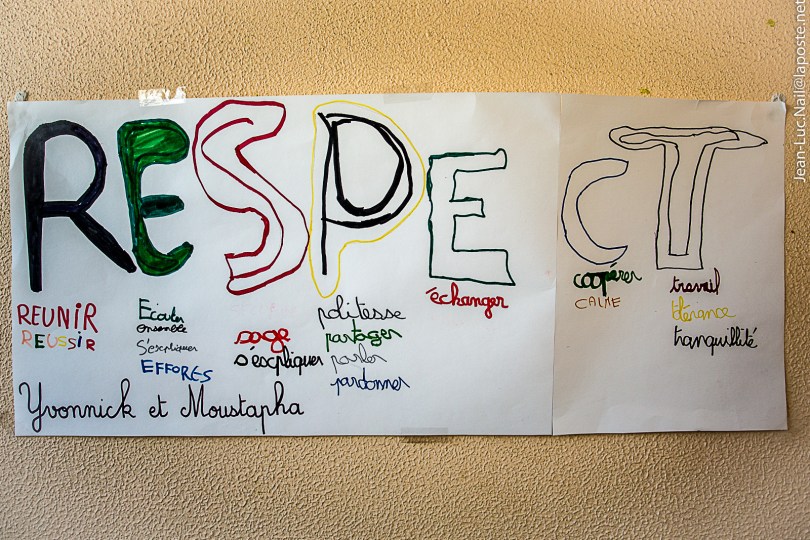 RESPECT
REUNIR
REUSSIR
Ecouter
ensemble
S'éxspliquer
EFFORES
sage
s'éxspliquer
politesse
partager
parler
pardonner
échanger
coopérer
CALME
travail
tolérance
tranquillité
Yvonnick et Moustapha
Jean-Luc.Nail@laposte.net